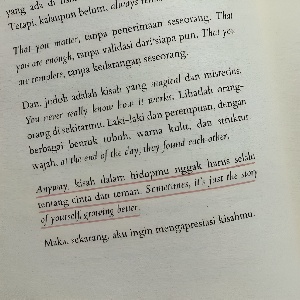 yang ada di
Tetapi, kalaupun belum, always
That you matter, tanpa penerimaan seseorang. That
you are enough, tanpa validasi dari siapa pun. That you
are complete, tanpa kedatangan seseorang.
Dan, jodoh adalah kisah yang magical dan misterius.
You never really know how it works. Lihatlah orang-
orang di sekitarmu. Laki-laki dan perempuan, dengan
berbagai bentuk tubuh, warna kulit, dan struktur
wajah, at the end of the day, they found each other.
Anyway, kisah dalam hidupmu nggak harus selalu
tentang cinta dan teman. Sometimes, it's just the story
of yourself, growing better.
Maka, sekarang, aku ingin mengapresiasi kisahmu.